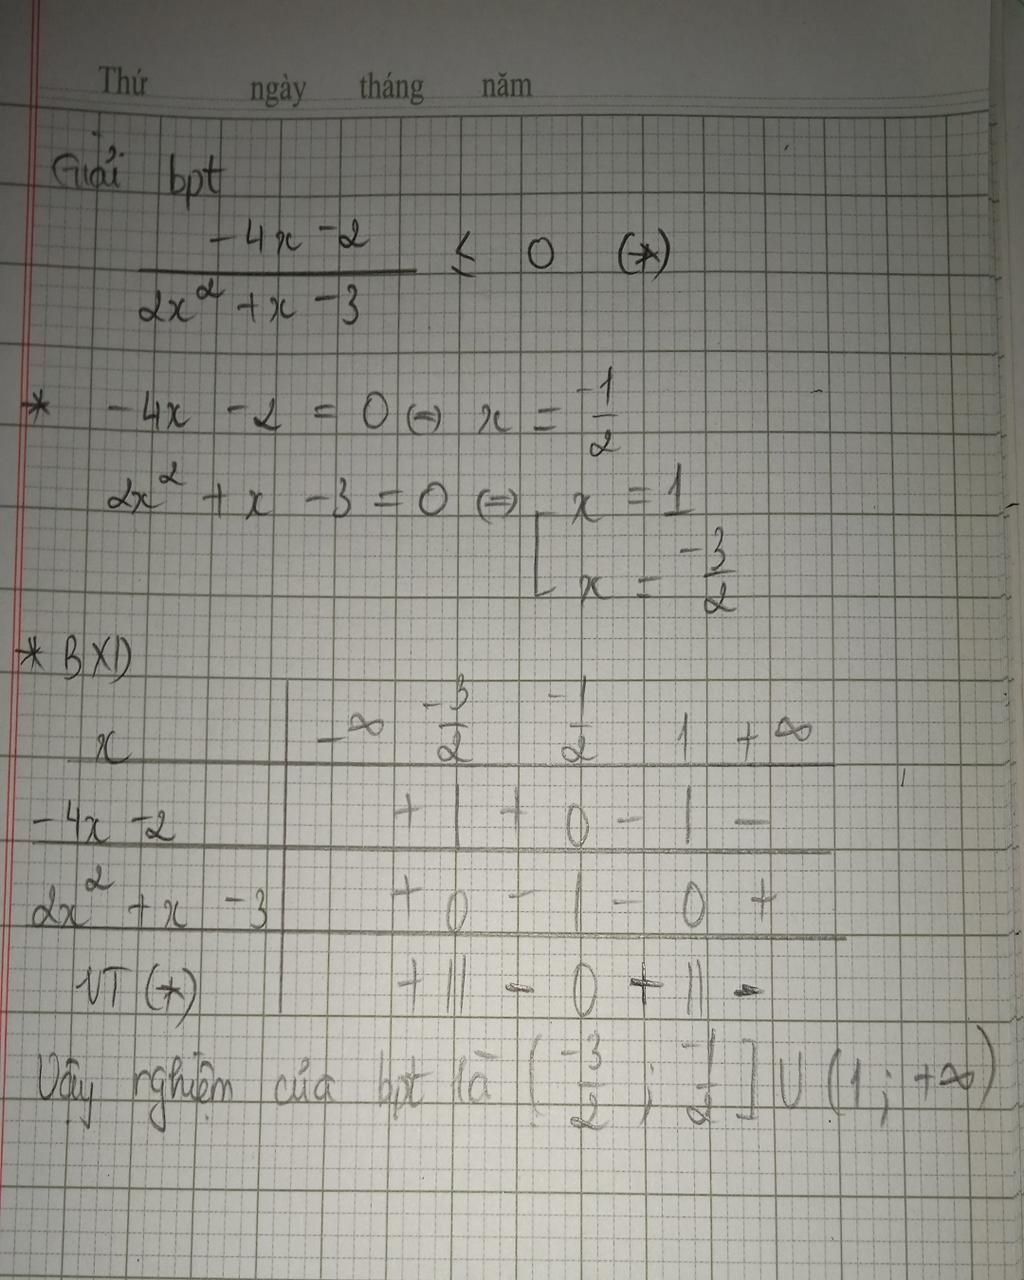 Thứ ngày tháng năm
Giải bpt
-4x -2
2x² + x -3
≤ 0 (*)
* -4x -2 = 0 (=) x = -1/2
2x² + x -3 = 0 (=) [ x = 1
x = -3/2
* BXD
x | -∞ -3/2 -1/2 1 +∞
-4x -2 | + | + 0 - | -
2x² + x -3 | + 0 - | - 0 +
VT (*) | + || - 0 + || -
Vậy nghiệm của bpt là (-3/2 ; -1/2] U (1; +∞)